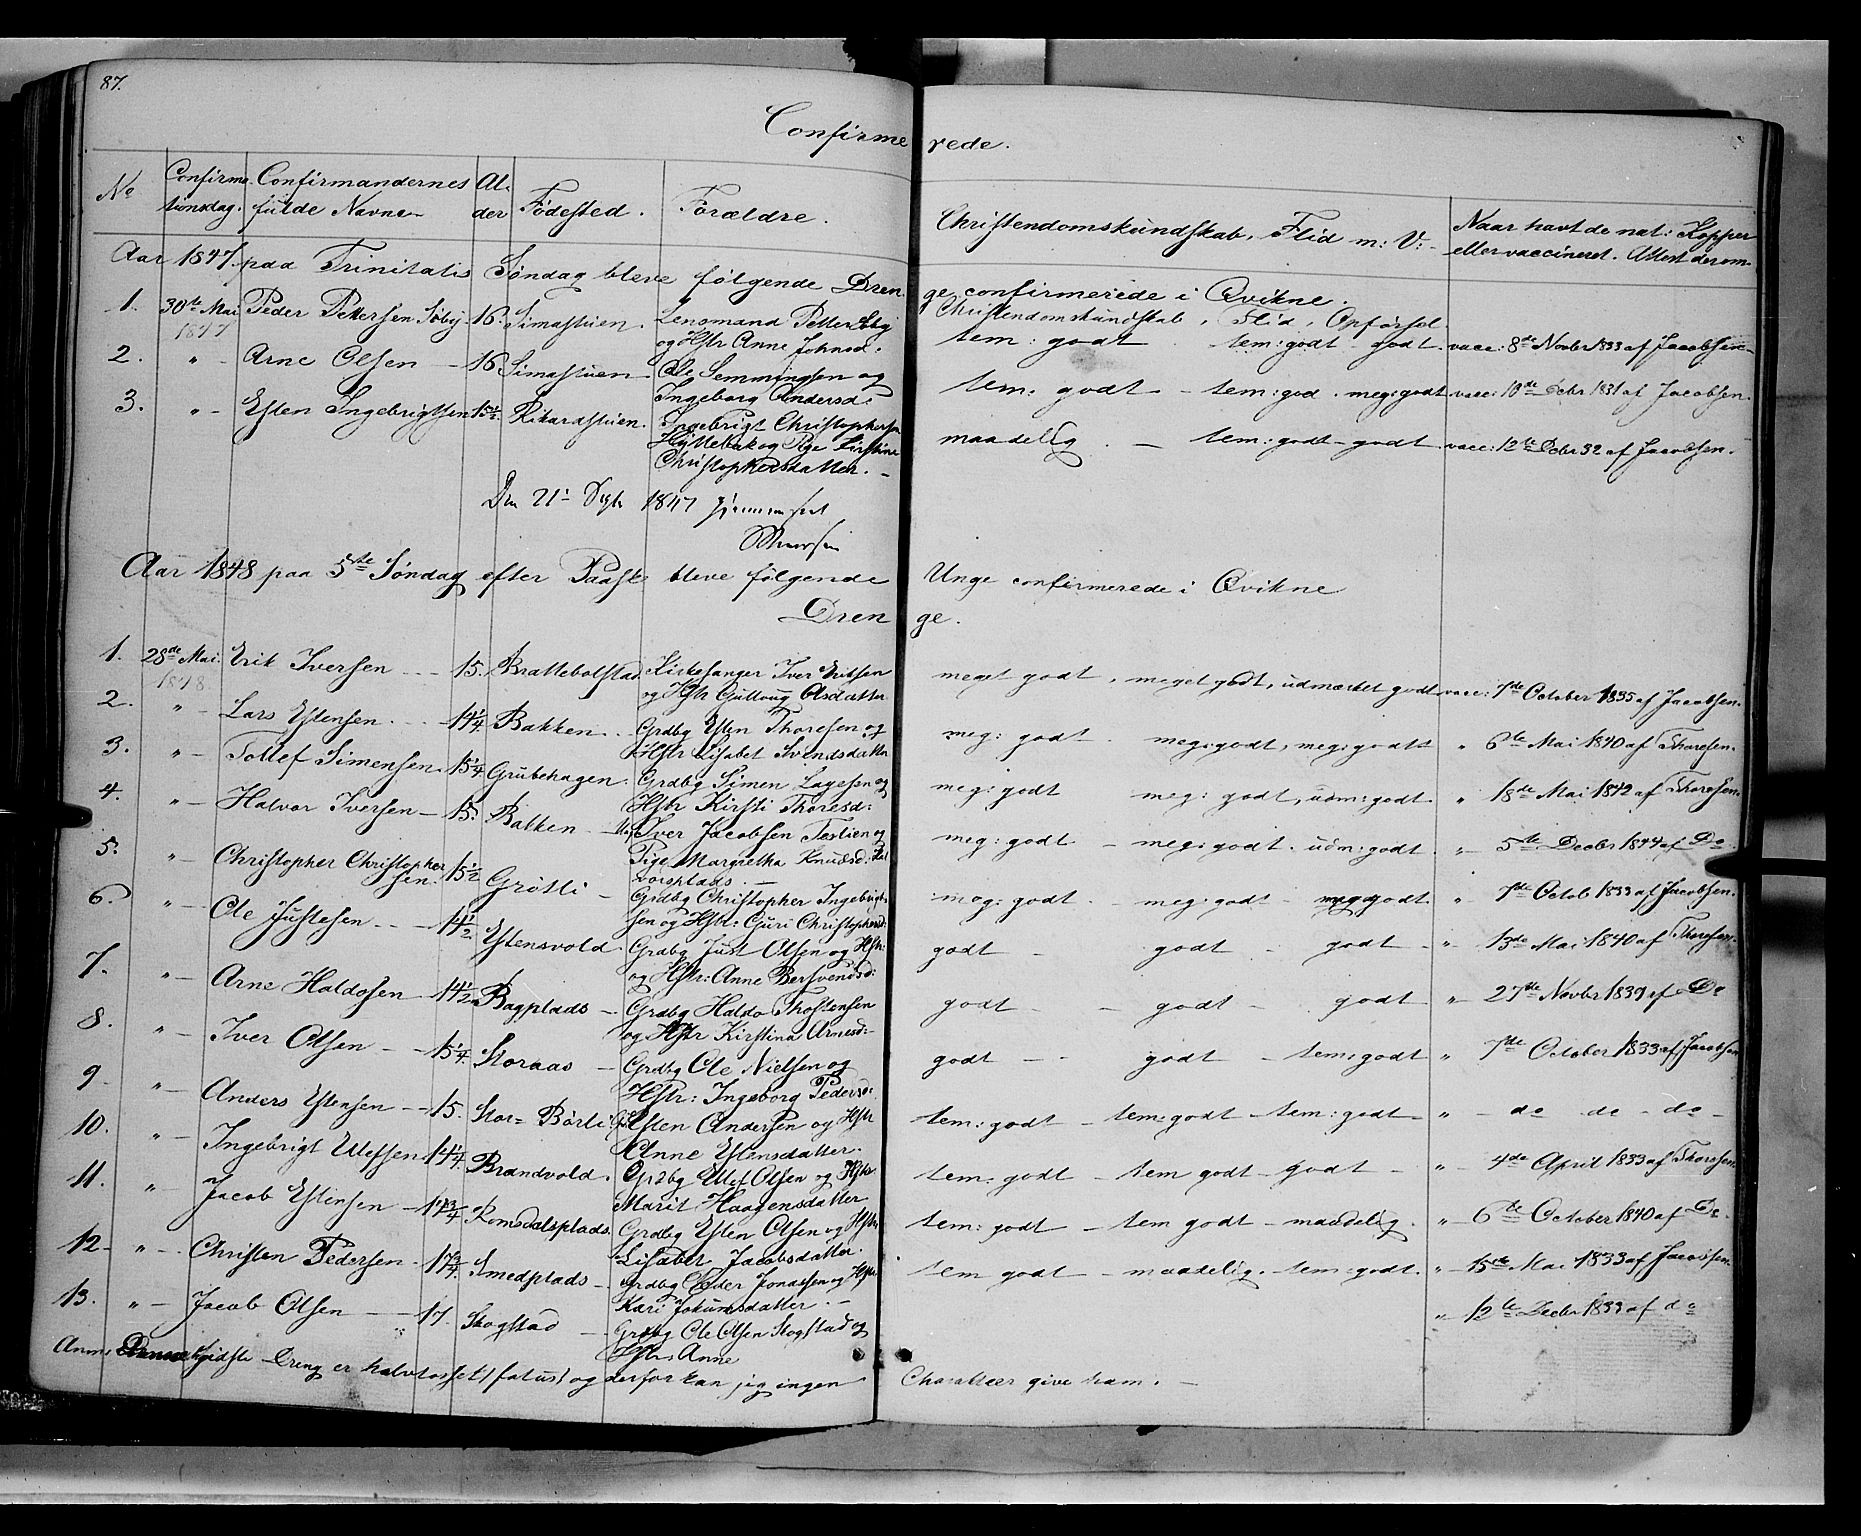 87.
Confirmerede.
No Confirmationsdag. Confirmandernes fulde Navne Alder Fødested. Forældre. Christendomskundskab, Flid m: V: Naar havt de nat: Kopper eller vaccineret. Attest derom
Aar 1847. paa Trinitatis Søndag bleve følgende Drenge confirmerede i Qvikne.
Christendomskundskab, Flid, Opførsel
1. 30te Mai 1847 Peder Pettersen Søbÿ 16. Simastuen. Lensmand Petter Søbÿ og Hstr Anne Johnsd: tem: godt tem: godt godt vacc: 8de Novbr 1833 af Jacobsen
2. " Arne Olsen 16 Simastuen Ole Semmingsen og Ingeborg Andersd: tem: godt tem: god meg: godt vacc: 10de Decbr 1831 af Jacobsen
3. " Esten Ingebrigtsen 15½ Rikardstuen. Ingebrigt Christophersen og Pige Kirstine Christophersdatter. maadelig tem: godt godt vacc: 12te Decbr 32 af Jacobsen.
Den 21 1847
Aar 1848 paa 5te Søndag efter Paaske bleve følgende Unge confirmerede i Qvikne
Drenge.
1. 28de Mai 1848. Erik Iversen 15. Brattebolstad Kirkesanger Iver Eriksen og Hstr Gullaug Olsdatter meget godt, meget godt, udmærket godt vacc: 7de October 1835 af Jacobsen.
2. " Lars Estensen 14¼ Bakken Grdbg Esten Thoresen og Hstr Lisabet Svendsdatter meg: godt meg: godt, meg: godt " 6te Mai 1840 af Thoresen.
3. " Tollef Simensen 15¼ Grubehagen Grdbg Simen Larssen og Hstr Kirsti Thoresd: meg: godt meg: godt, udm: godt " 18de Mai 1842 af Thoresen.
4. " Halvor Iversen 15. Bakken Iver Jacobsen og Pige Margretha Knudsd: meg: godt meg: godt udm: godt " 5te Decbr 1844 af Do
5. " Christopher Christophersen 15½ Grötli Grdbg Christopher Ingebrigtsen og Hstr: Guri Christophersd: meg: godt meg: godt meg: godt " 7de Octob 1833 af Jacobsen.
6. " Ole Justesen 14½ Estensvold Grdbg Just Olsen og Hstr: og Hstr: Anne Bersvendsd: godt godt godt " 13de Mai 1840 af Thoresen.
7. " Arne Haldosen 14½ Bagplads Grdbg Haldo Thostensen og Hstr Kirstina Arnesd: godt godt godt " 27de Novbr 1839 af Do
8. " Iver Olsen 15¼ Storaas Grdbg Ole Nielsen og Hstr: Ingeborg Pedersd: godt godt tem: godt " 7de October 1833 af Jacobsen
9. " Anders Estensen 15. Stor=Börli Esten Andersen og Hstr Anne Estensdatter. tem: godt tem: godt tem: godt " do do do
10. " Ingebrigt Ulefsen 14¼ Brandvold Grdbg Ulef Olsen og Hstr Marit Haagensdatter tem: godt tem godt godt " 4de April 1833 af Thoresen
11. " Jacob Estensen 14¾ Romsdalsplads Grdbg Esten Olsen og Hstr Lisabet Jacobsdatter. tem: godt tem godt maadelig. " 6te October 1840 af Do
12. " Christen Pedersen 17¾ Smedplads Grdbg Peder Jonassen og Hstr Kari Jokumsdatter. tem godt maadelig. tem: godt. " 15de Mai 1833 af Jacobsen.
13. " Jacob Olsen 17. Skogstad Grdbg Ole Olsen Skogstad og Hstr. Anne " 12te Decbr 1833 af do
Anm. sidste Dreng er halvtosset (fatus) og derfor kan jeg ingen Charakteer give ham.